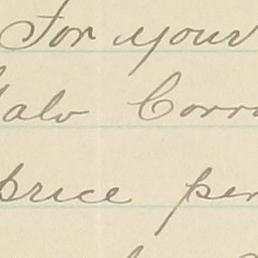 For your
alo Corr
price per